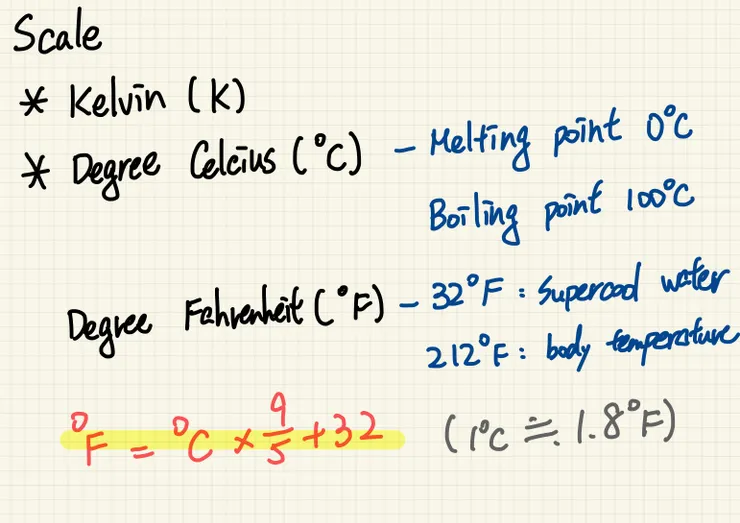 Scale
* Kelvin (K)
* Degree Celcius (°C) - Melting point 0°C
Boiling point 100°C
Degree Fahrenheit (°F) - 32°F : Supercool water
212°F : body temperature
°F = °C × 9/5 + 32 (1°C ≒ 1.8°F)